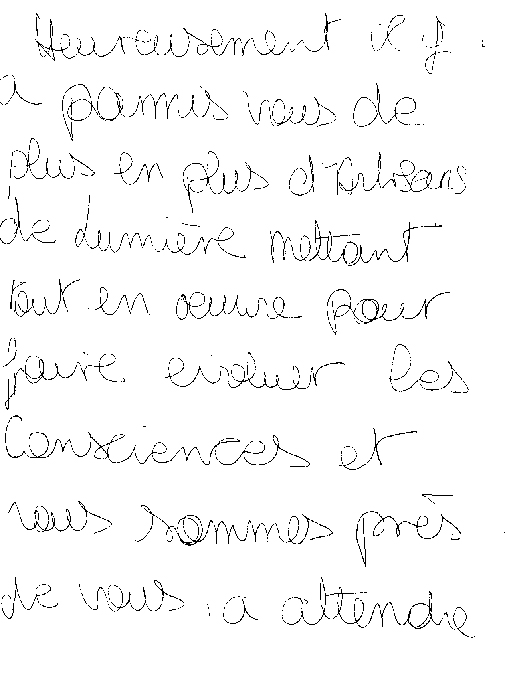 Heureusement il y
a parmis vous de
plus en plus d'Artisans
de Lumière mettant
tout en œuvre pour
faire evoluer les
Consciences et
nous sommes près
de vous. a attendre